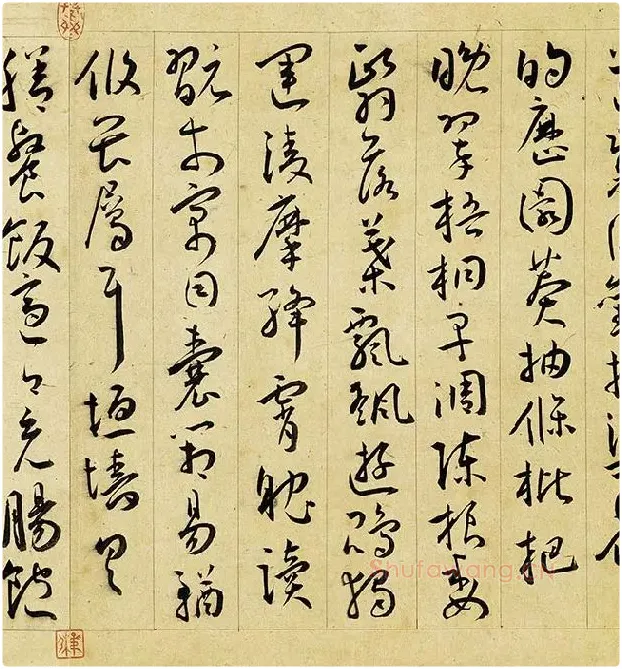 的歷園莽抽條枇杷
晚翠梧桐早凋陳根委
翳落葉飄颻遊鵾獨
運凌摩絳霄耽讀
翫市寓目囊箱易輶
攸畏屬耳垣墻具
膳餐飯適口充腸飽
Shufawang.cn